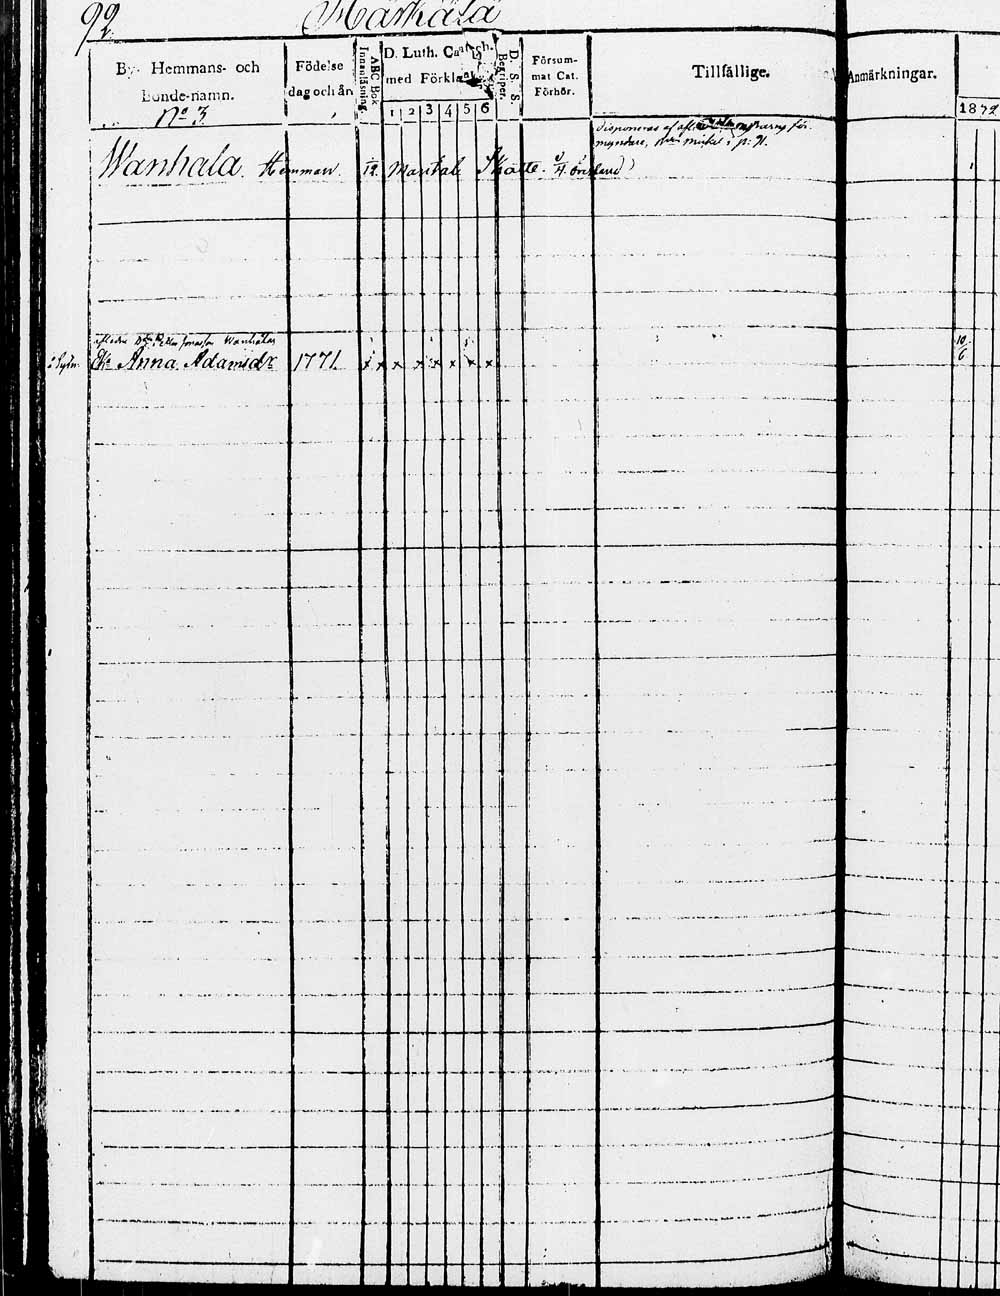 92.
Härkälä
By- Hemmans- och
Bonde-namn.
No 3
Födelse
dag och år
ABC Bok
Innanläsning.
D. Luth. Catech.
med Förklar
1 2 3 4 5 6
D. S. S.
Begriper.
Försum-
mat Cat.
Förhör.
Tillfällige.
Anmärkningar.
1872
disponeras af
myndare, i p: 91.
Wanhala Hemman. 1/12 Mantal Skatte.
afledne Petter Jonasson Wanhalas
Eka Anna Adamsdr 1771. x x x x x x x x
10/6